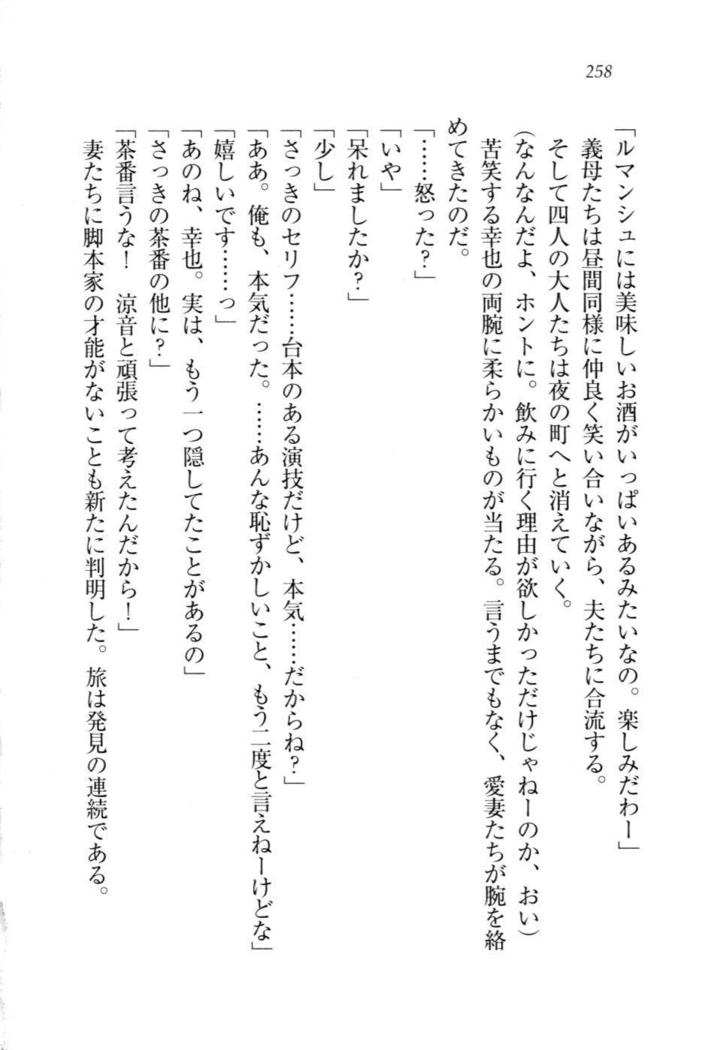 258
「ルマンシュには美味しいお酒がいっぱいあるみたいなの。楽しみだわー」
義母たちは昼間同様に仲良く笑い合いながら、夫たちに合流する。
そして四人の大人たちは夜の町へと消えていく。
(なんなんだよ、ホントに。飲みに行く理由が欲しかっただけじゃねーのか、おい)
苦笑する幸也の両腕に柔らかいものが当たる。言うまでもなく、愛妻たちが腕を絡
めてきたのだ。
「……怒った?」
「いや」
「呆れましたか?」
「少し」
「さっきのセリフ……台本のある演技だけど、本気……だからね?」
「ああ。俺も、本気だった。……あんな恥ずかしいこと、もう二度と言えねーけどな」
「嬉しいです……っ」
「あのね、幸也。実は、もう一つ隠してたことがあるの」
「さっきの茶番の他に?」
「茶番言うな! 涼音と頑張って考えたんだから!」
妻たちに脚本家の才能がないことも新たに判明した。旅は発見の連続である。